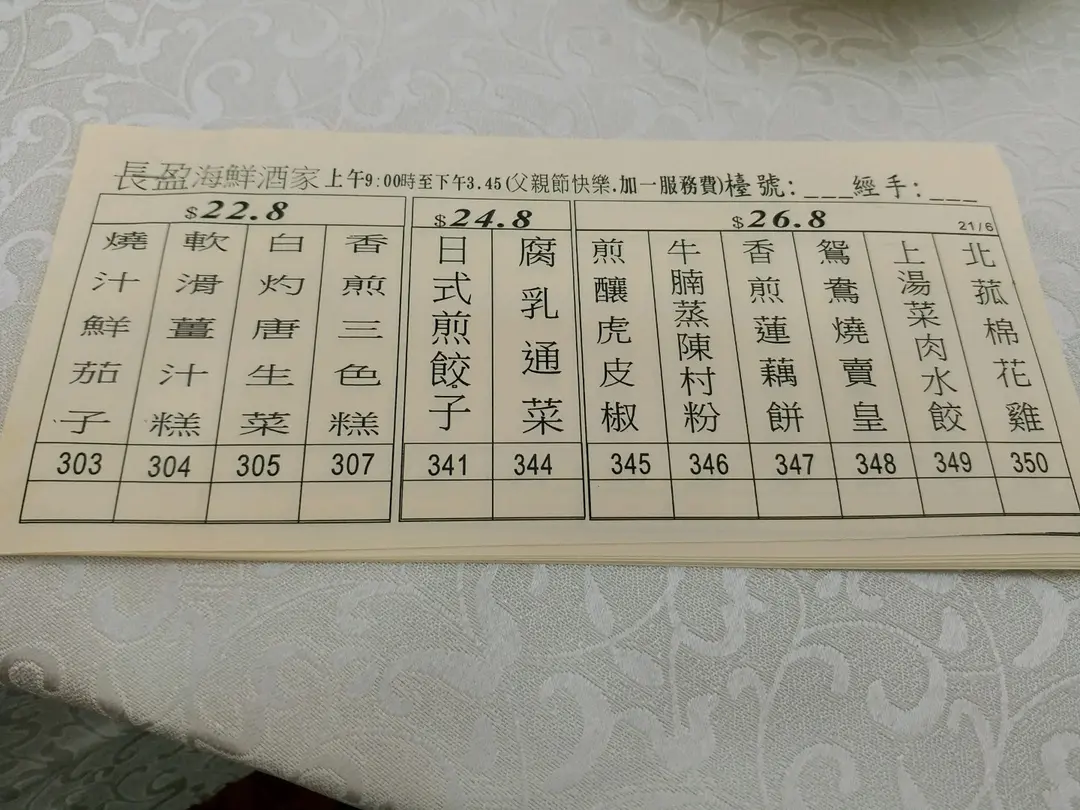 長盈海鮮酒家上午9:00時至下午3.45(父親節快樂.加一服務費)檯號:___經手:___
$22.8
$24.8
$26.8
21/6
燒汁鮮茄子
軟滑薑汁糕
白灼唐生菜
香煎三色糕
日式煎餃子
腐乳通菜
煎釀虎皮椒
牛腩蒸陳村粉
香煎蓮藕餅
鴛鴦燒賣皇
上湯菜肉水餃
北菰棉花雞
303 304 305 307 341 344 345 346 347 348 349 350